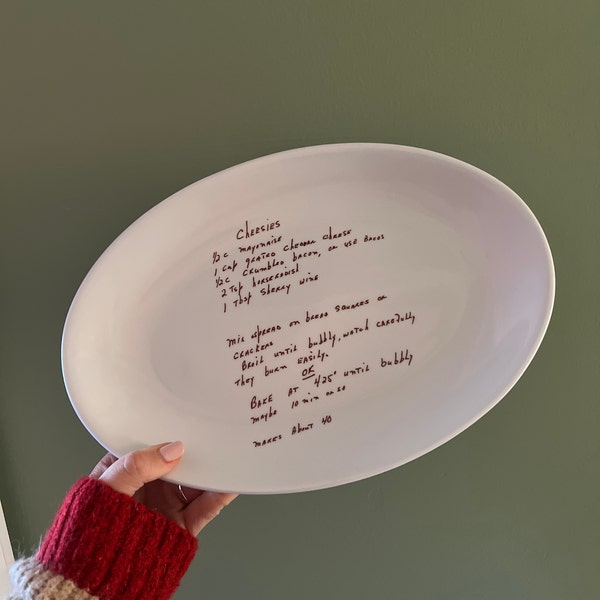 CHEESIES
1/2 c mayonaise
1 cup grated cheddar cheese
1/2 c crumbled bacon, or use Bacos
2 tsp horseradish
1 tbsp sherry wine
mix spread on bread squares or
crackers
Broil until bubbly, watch carefully
they burn easily.
OR
BAKE AT 425° until bubbly
maybe 10 min or so
makes About 40